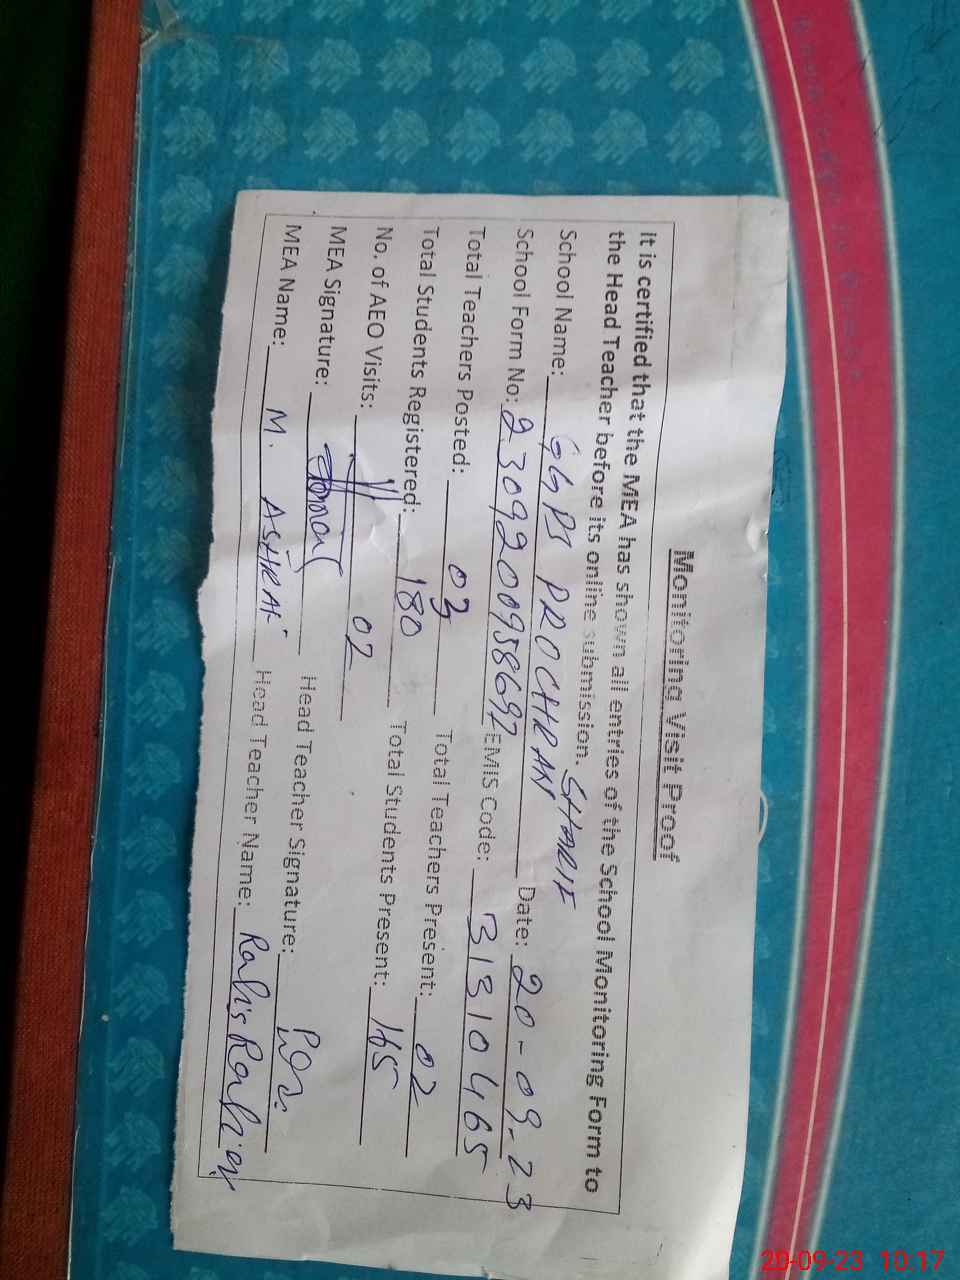 Monitoring Visit Proof
it is certified that the MEA has shown all entries of the School Monitoring Form to
the Head Teacher before its online submission.
School Name: GGPS PROCHRAN SHARIF
School Form No: 2309200958697 Date: 20-09-23
EMIS Code: 31310465
Total Teachers Posted: 03 Total Teachers Present: 02
Total Students Registered: 180 Total Students Present: 165
No. of AEO Visits: 02
MEA Signature: Head Teacher Signature:
MEA Name: M. ASHRAF Head Teacher Name:
20-09-23 10:17